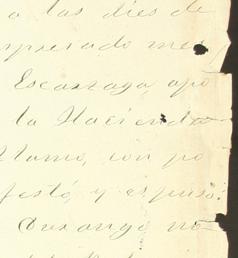 a las diez de
expresado mes
Escarzaga, apo
la Hacienda
llamo, con po
festó y espuso:
Durango no